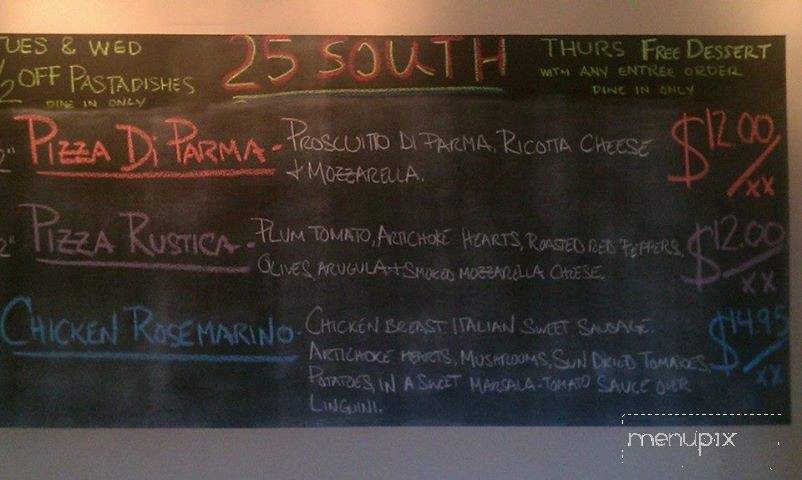 TUES & WED
1/2 OFF PASTADISHES
DINE IN ONLY
25 SOUTH
THURS FREE DESSERT
WITH ANY ENTREE ORDER
DINE IN ONLY
2" PIZZA DI PARMA - PROSCUITTO DI PARMA, RICOTTA CHEESE $12.00/xx
+ MOZZARELLA.
2" PIZZA RUSTICA - PLUM TOMATO, ARTICHOKE HEARTS, ROASTED RED PEPPERS, $12.00/xx
OLIVES, ARUGULA + SMOKED MOZZARELLA CHEESE.
CHICKEN ROSEMARINO - CHICKEN BREAST ITALIAN SWEET SAUSAGE. $14.95/xx
ARTICHOKE HEARTS, MUSHROOMS, SUN DRIED TOMATOES,
POTATOES, IN A SWEET MARSALA-TOMATO SAUCE OVER
LINGUINI.
menupix